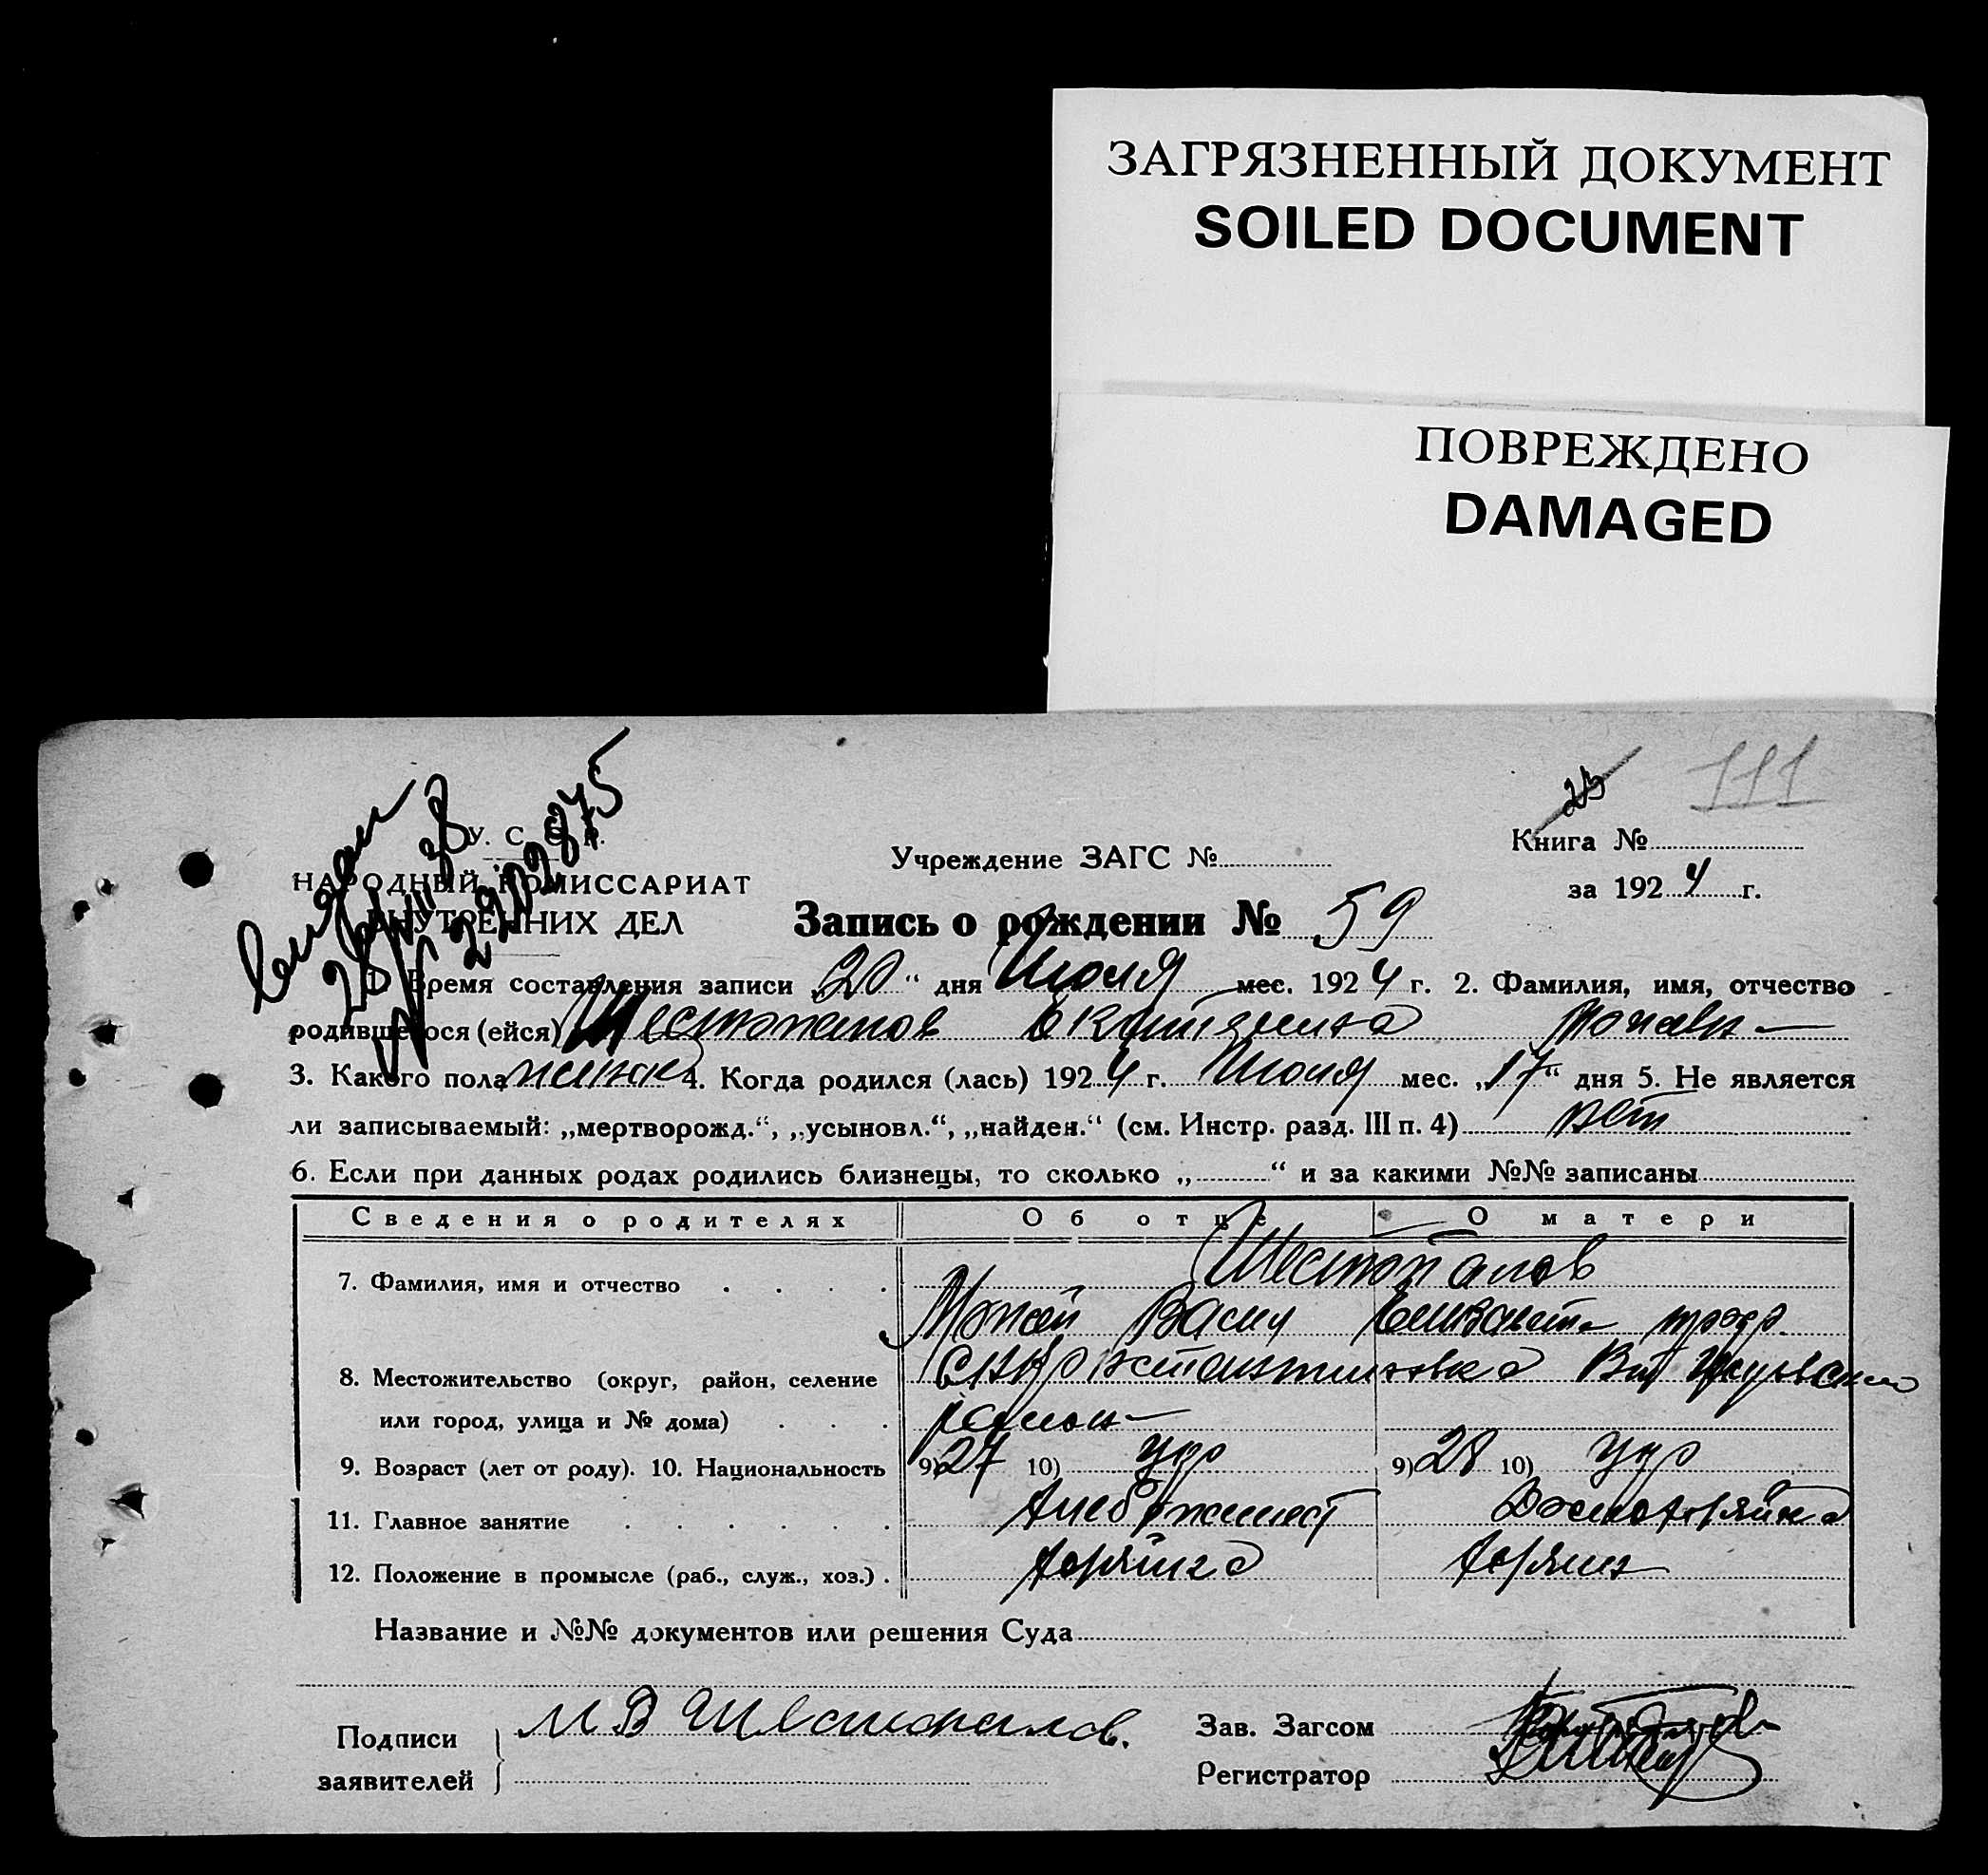 ЗАГРЯЗНЕННЫЙ ДОКУМЕНТ
SOILED DOCUMENT
ПОВРЕЖДЕНО
DAMAGED
111
23
У. С. С. Р.
НАРОДНЫЙ КОМИССАРИАТ
ВНУТРЕННИХ ДЕЛ
Учреждение ЗАГС №
Книга №
за 1924 г.
Запись о рождении № 59
1. Время составления записи „20“ дня Июля мес. 1924 г. 2. Фамилия, имя, отчество
родившегося (ейся) Шестопалов
3. Какого пола женск 4. Когда родился (лась) 1924 г. Июля мес. „17“ дня 5. Не является
ли записываемый: „мертворожд.“, „усыновл.“, „найден.“ (см. Инстр. разд. III п. 4) нет
6. Если при данных родах родились близнецы, то сколько „ “ и за какими №№ записаны
Сведения о родителях Об отце О матери
7. Фамилия, имя и отчество Шестопалов
Васил Елизавета
8. Местожительство (округ, район, селение
или город, улица и № дома) район
9. Возраст (лет от роду). 10. Национальность 9) 27 10) Укр 9) 28 10) Укр
11. Главное занятие Хлебопашест Домохозяйка
12. Положение в промысле (раб., служ., хоз.) хозяин
Название и №№ документов или решения Суда
Подписи
заявителей
М В Шестопалов.
Зав. Загсом
Регистратор